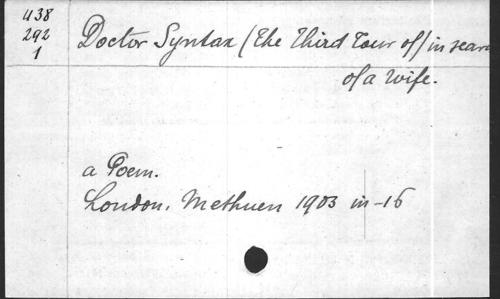 438
292
1
Doctor Syntax (The Third Tour of) in sear
of a Wife.
a Poem.
London, Methuen 1903 in-16